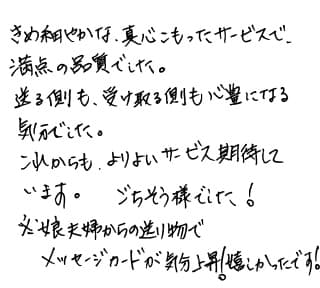 きめ細やかな、真心こもったサービスで、
満点の品質でした。
送る側も、受け取る側も心豊になる
気分でした。
これからも、よりよいサービス期待して
います。 ごちそう様でした!
※娘夫婦からの送り物で
メッセージカードが気分上昇!嬉しかったです!